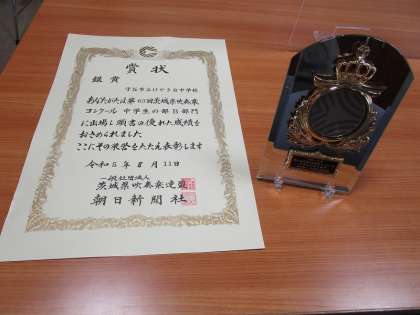 賞状
銀賞
守谷市立けやき台中学校
あなたがたは第63回茨城県吹奏楽
コンクール中学生の部B部門
に出場し頭書の優れた成績を
おさめられました
ここにその栄誉をたたえ表彰します
令和5年8月11日
一般社団法人
茨城県吹奏楽連盟
朝日新聞社